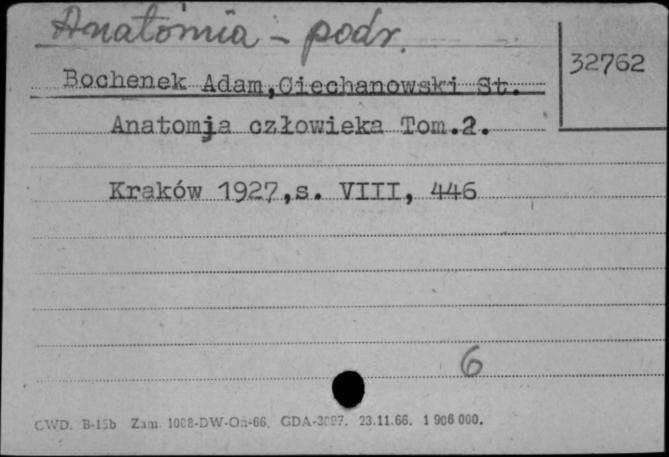 Anatomia - podr.
32762
Bochenek Adam, Ciechanowski St.
Anatomja człowieka Tom.2.
Kraków 1927, s. VIII, 446
6
CWD. B-15b Zam. 1088-DW-On-66. GDA- 23.11.66. 1 906 000.